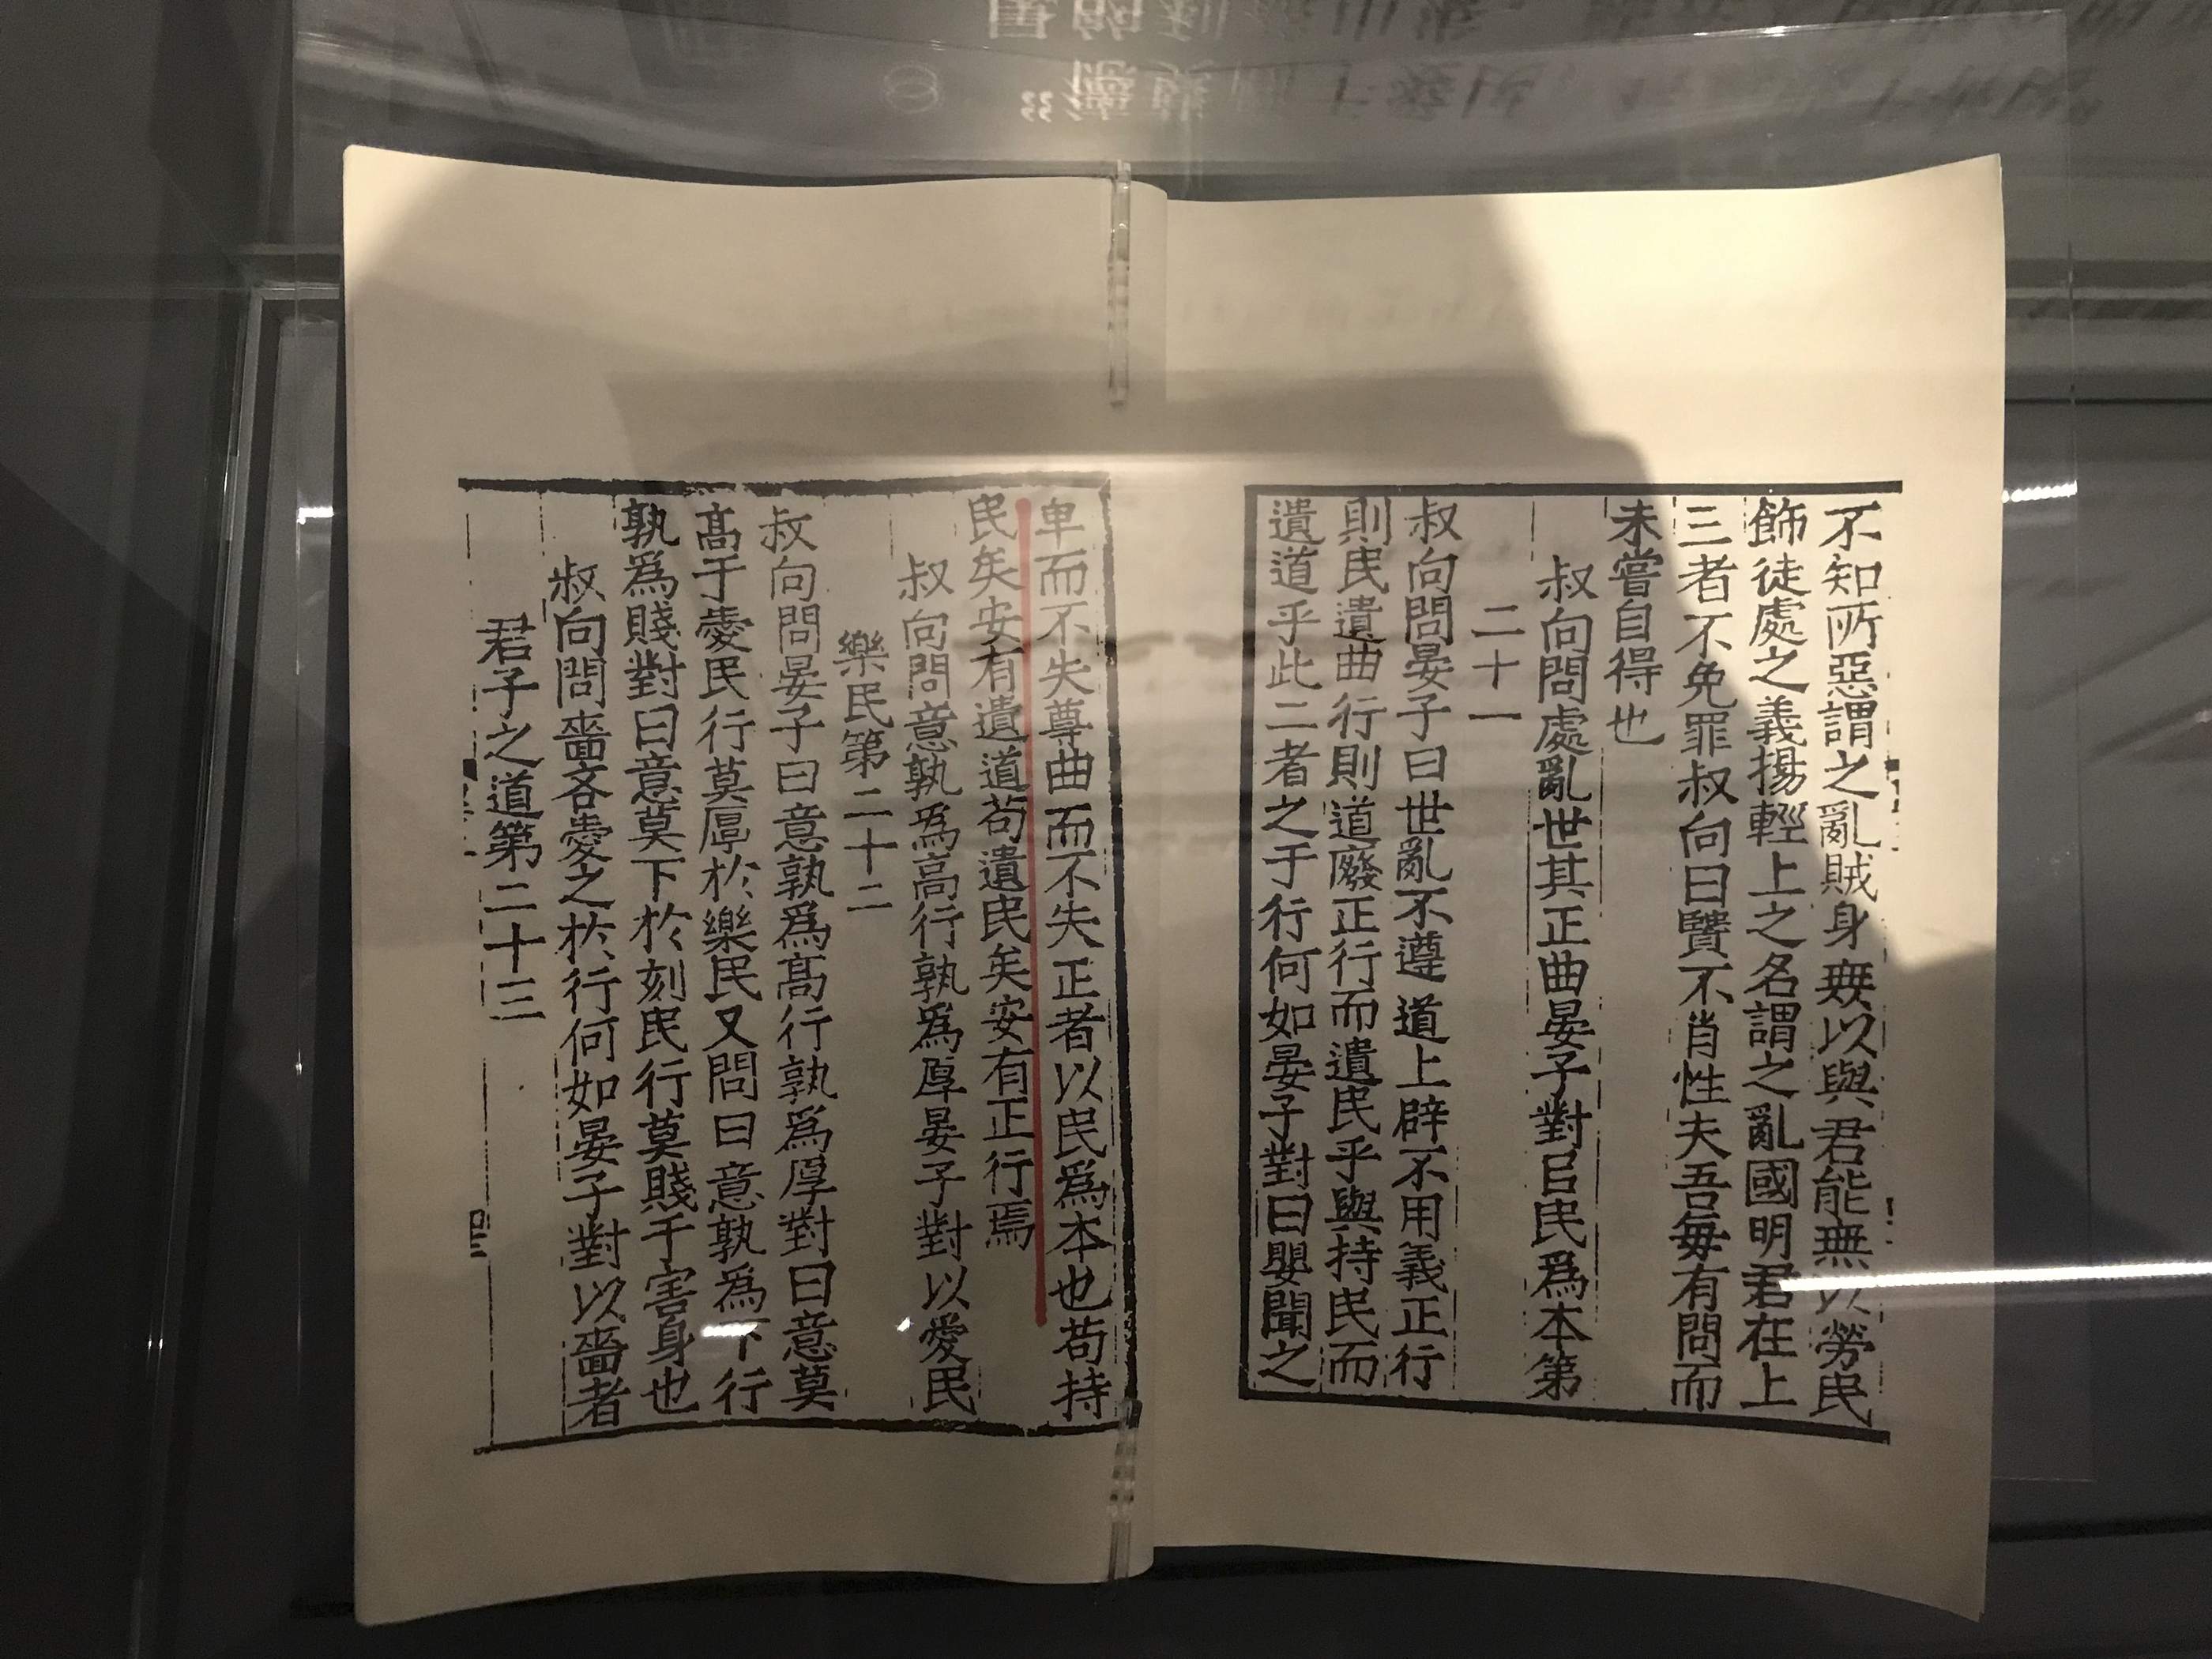 不知所惡謂之亂賊身無以與君能無以勞民
飾徒處之義揚輕上之名謂之亂國明君在上
三者不免罪叔向曰賢不肖性夫吾每有問而
未嘗自得也
叔向問處亂世其正曲晏子對曰民爲本第
二十一
叔向問晏子曰世亂不遵道上辟不用義正行
則民遺曲行則道廢正行而遺民乎與持民而
遺道乎此二者之于行何如晏子對曰嬰聞之
卑而不失尊曲而不失正者以民爲本也苟持
民矣安有遺道苟遺民矣安有正行焉
叔向問意孰爲高行孰爲厚晏子對以愛民
樂民第二十二
叔向問晏子曰意孰爲髙行孰爲厚對曰意莫
髙于愛民行莫厚於樂民又問曰意孰爲下行
孰爲賤對曰意莫下於刻民行莫賤于害身也
叔向問嗇吝愛之於行何如晏子對以嗇者
君子之道第二十三